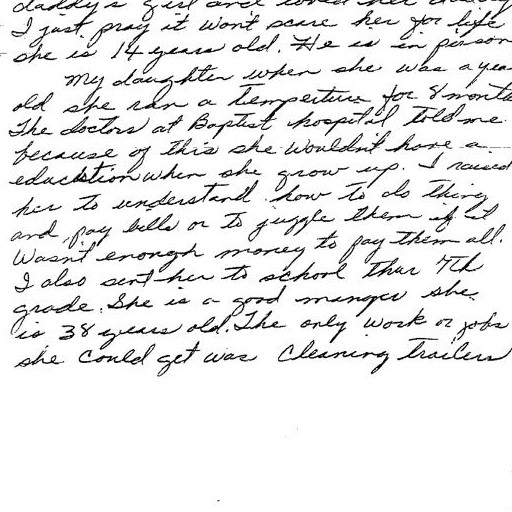 daddy's girl and loved her
I just pray it wont scare her for life
she is 14 years old. He is in prison
My daughter when she was a year
old she ran a temperture for 8 months
The doctors at Baptist hospital told me
because of this she wouldn't have a
education when she grow up. I raised
her to understand how to do thing
and pay bills or to juggle them if it
Wasn't enough money to pay them all.
I also sent her to school thur 7th
grade. She is a good manger she
is 38 years old. The only work or jobs
she could get was Cleaning Trailers